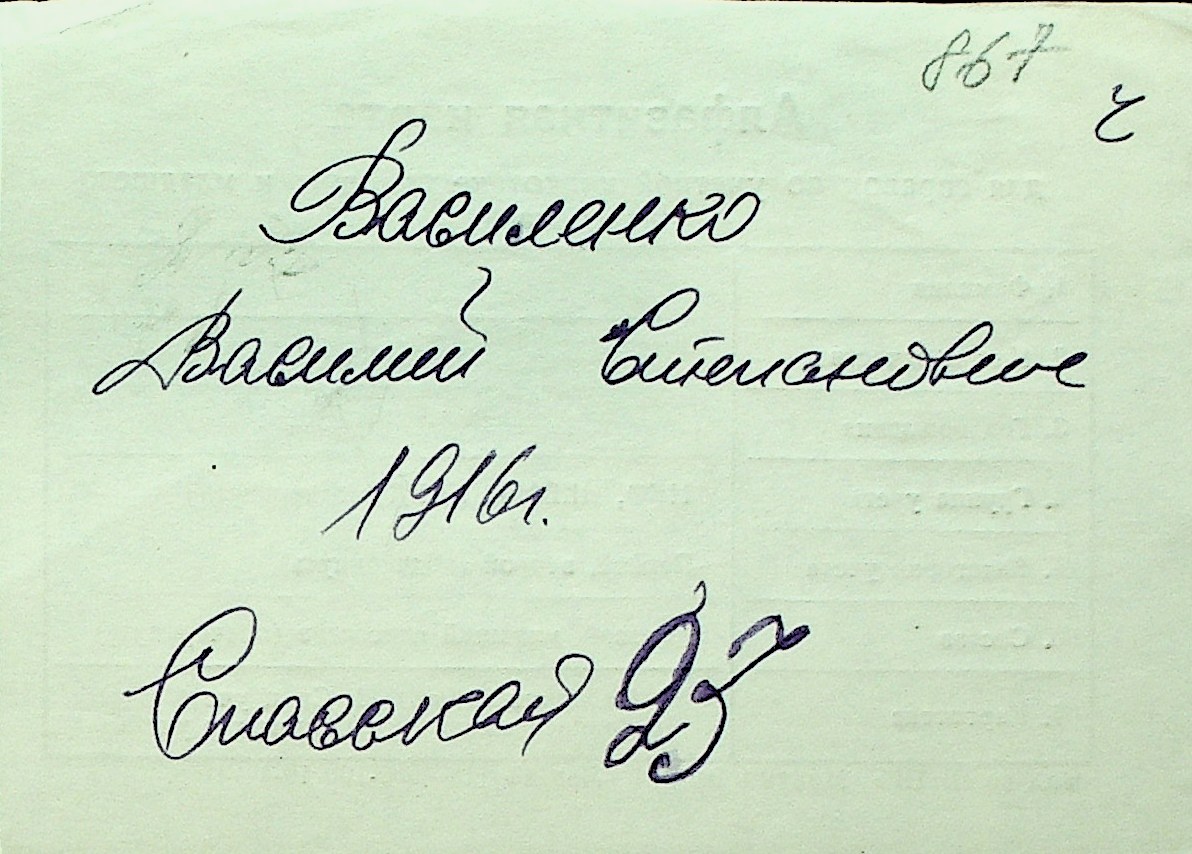 867
Василенко
Василий Степанович
1916г.
Спасская 93